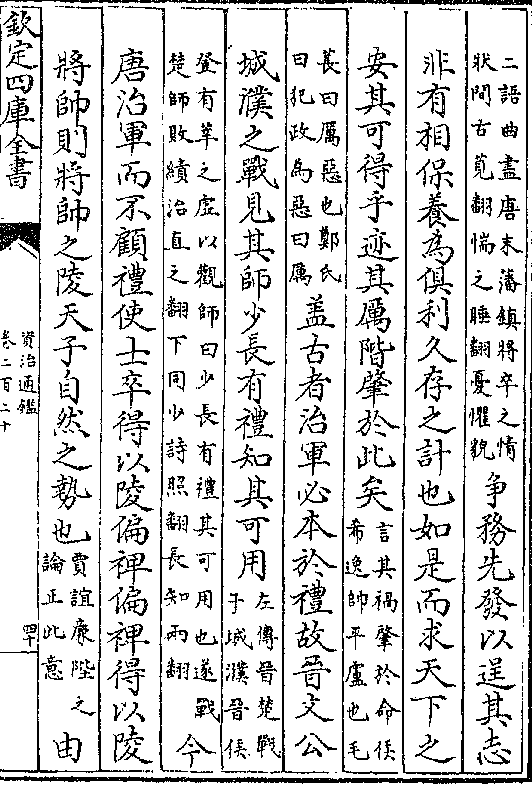 二語曲盡唐末藩鎮將卒之情
狀間古莧翻惴之睡翻憂懼貌
爭務先發以逞其志
非有相保養為俱利久存之計也如是而求天下之
安其可得乎迹其厲階肇於此矣
言其禍肇於命侯
希逸帥平盧也毛
萇曰厲惡也鄭氏
曰犯政為惡曰厲
盖古者治軍必本於禮故晉文公
城濮之戰見其師少長有禮知其可用
左傳晉楚戰
于城濮晉侯
登有莘之虛以觀師曰少長有禮其可用也遂戰
楚師敗績治直之翻下同少詩照翻長知兩翻
今
唐治軍而不顧禮使士卒得以陵偏裨偏裨得以陵
將帥則將帥之陵天子自然之勢也
賈誼廉陛之
論正此意
由
欽定四庫全書
資治通鑑
卷二百二十